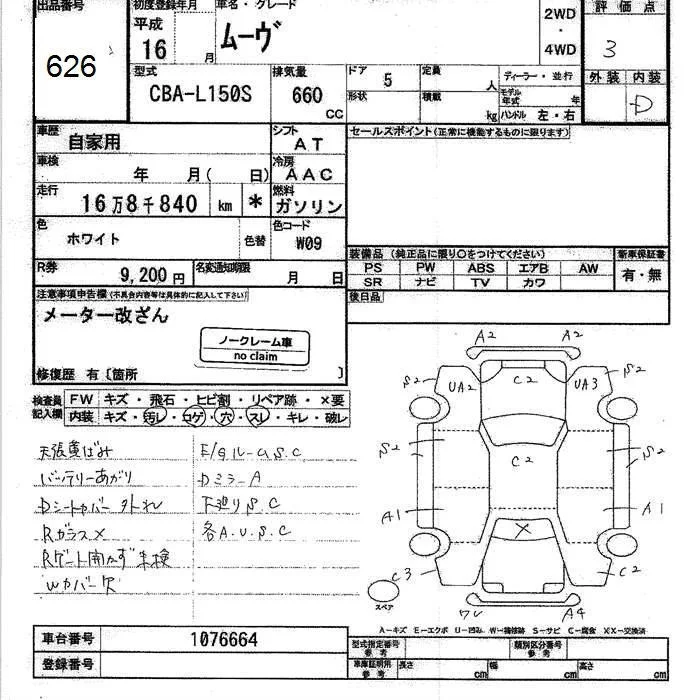 出品番号 初度登録年月 車名・グレード 2WD ・ 4WD 評価点
626 平成 16 月 ムーヴ 3
型式 CBA-L150S 排気量 660 CC ドア 5 定員 人 ディーラー・並行 外装 内装
形状 積載 kg モデル年式 年 ハンドル 左・右 D
車歴 自家用 シフト AT セールスポイント(正常に機能するものに限ります)
車検 年 月( 日) 冷房 AAC
走行 16万8千840 km * 燃料 ガソリン
色 ホワイト 色替 色コード W09
装備品(純正品に限り○をつけてください) 新車保証書
R券 9,200円 名変通知期限 月 日
PS PW ABS エアB AW 有・無
SR ナビ TV カワ
注意事項申告欄(不具合内容等は具体的に記入して下さい) 後日品
メーター改ざん
ノークレーム車
no claim
修復歴 有〔箇所 〕
検査員記入欄 FW キズ・飛石・ヒビ割・リペア跡・×要
内装 キズ・汚レ・コゲ・穴・スレ・キレ・破レ
天張黄ばみ E/gルームS.C
バッテリーあがり DミラーA
Dシートカバー外れ 下廻りS.C
Rガラス× 各A.U.S.C
Rゲート開かず未検
Wカバー欠
A2 A2
S2 UA2 C2 UA3 S2
S2 C2 S2
A1 × A1
C3 C2
スペア A4
A-キズ E-エクボ U-凹み W-補修跡 S-サビ C-腐食 XX-交換済
車台番号 1076664 型式指定番号 参考 類別区分番号 参考
登録番号 車庫証明用 参考 長さ cm 幅 cm 高さ cm